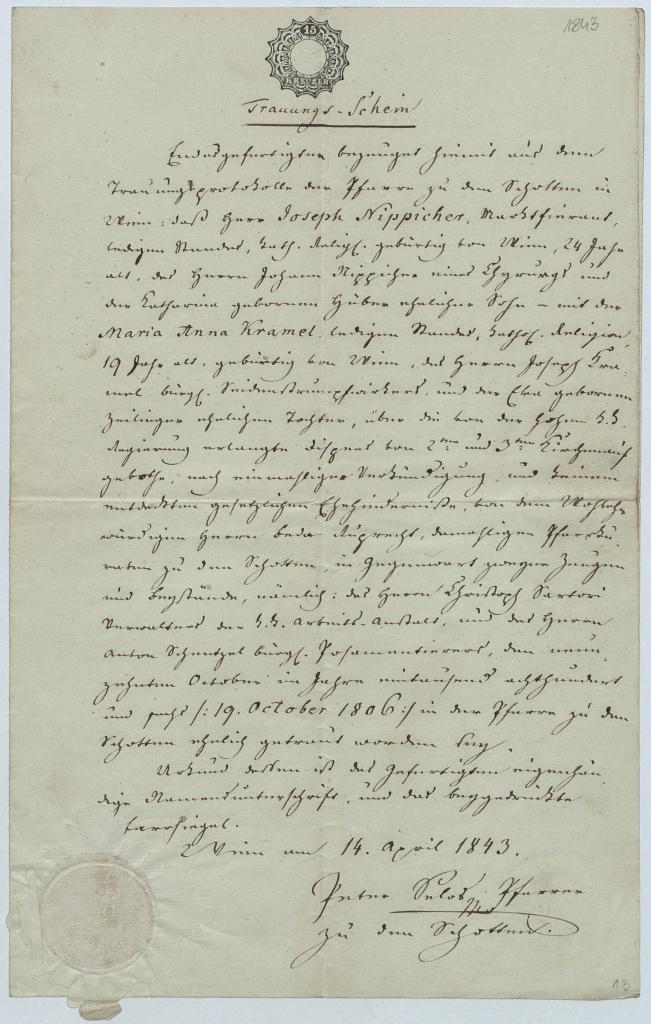 1843
15
KREUZER
Trauungs-Schein
Endesgefertigter bezeuget hiemit aus dem
Trauungsprotokolle der Pfarre zu den Schotten in
Wien: daß Herr Joseph Nippicher, Marktfierant,
ledigen Standes, kath. Religi. gebürtig von Wien, 24 Jahr
alt, des Herrn Johann Nippicher eines Chyrurgs und
der Katharina gebornen Huber ehelicher Sohn – mit der
Maria Anna Kramel, ledigen Standes, kathol. Religion,
19 Jahr alt, gebürtig von Wien, des Herrn Joseph Kra-
mel bürgl. Seidenstrumpfwirkers, und der Eva gebornen
Zeilinger ehelichen Tochter, über die von der hohen k.k.
Regierung erlangte Dispens von 2ten und 3ten Kirchenauf-
gebothe, nach einmahliger Verkündigung, und keinem
entdeckten gesetzlichen Ehehinderniße, von dem Wohlehr-
würdigen Herrn Beda Ruprecht, damahligen Pfarrku-
raten zu den Schotten, in Gegenwart zweyer Zeugen
und Beystände, nämlich: des Herrn Christoph Sartori
Verwalters der k.k. Arbeits-Anstalt, und des Herrn
Anton Schnetzel bürgl. Posamentierers, den neun-
zehnten October im Jahre eintausend achthundert
und sechs /: 19. October 1806 :/ in der Pfarre zu den
Schotten ehelich getraut worden sey.
Urkund dessen ist des Gefertigten eigenhän-
dige Namensunterschrift, und das beygedrückte
farrsiegel.
Wien am 14. April 1843.
Peter Pfarrer
zu den Schotten.
13